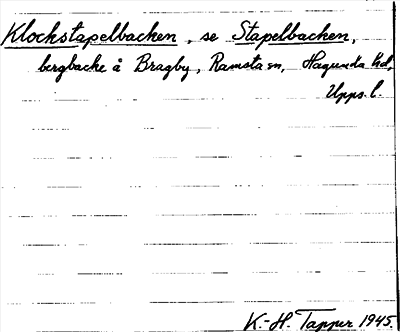 Klockstapelbacken, se Stapelbacken,
bergbacke å Bragby, Ramsta sn, Hagunda hd,
Upps. l.
K.-H. Tapper 1945.